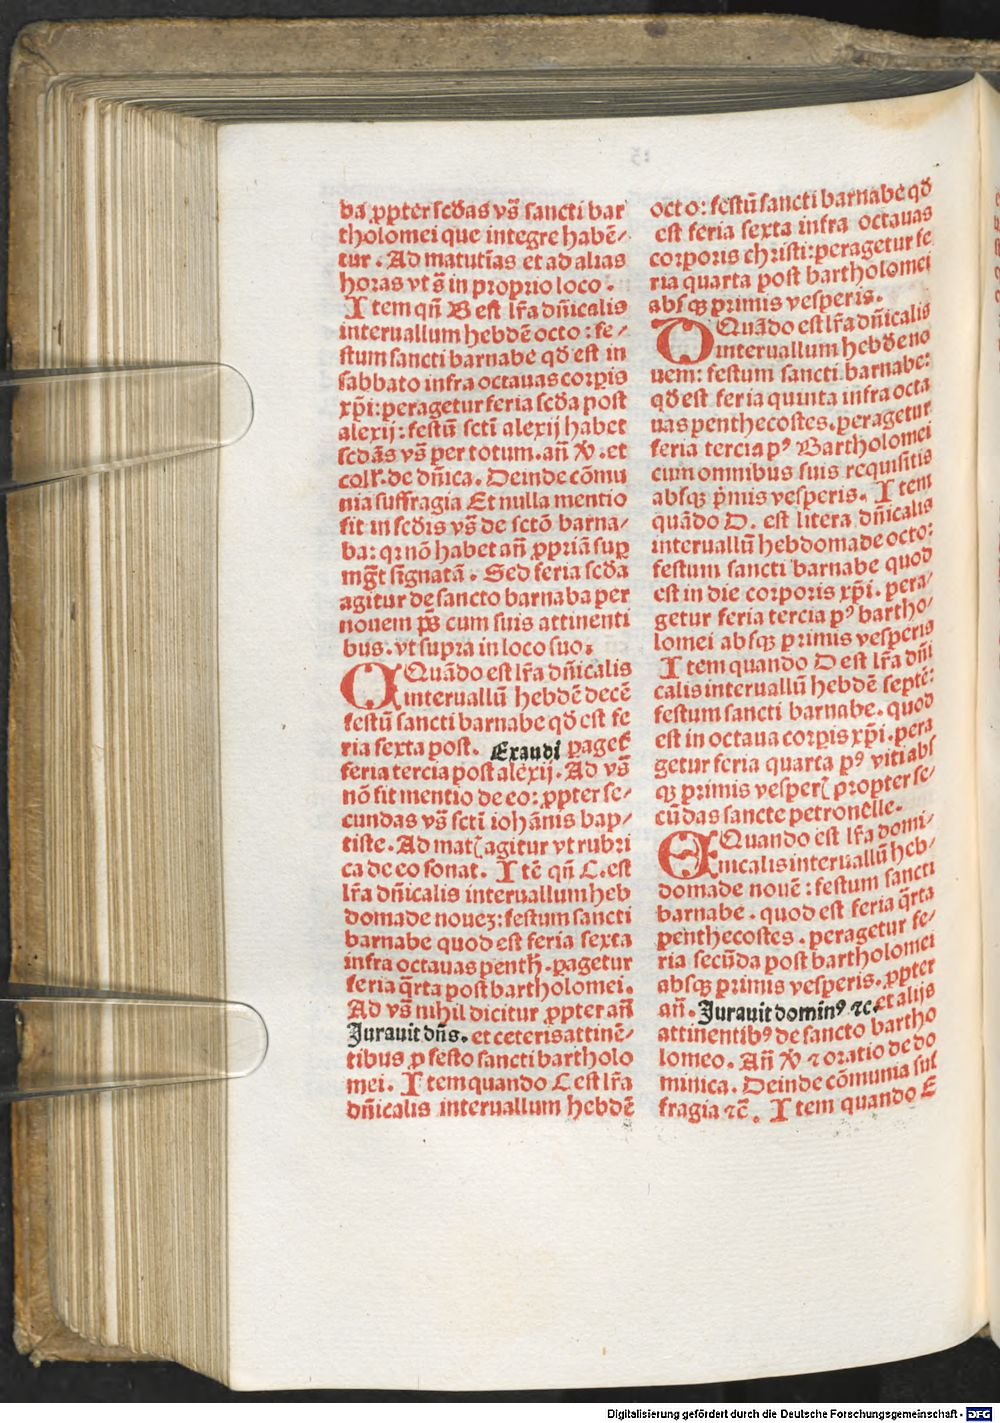 ba ꝓpter scd̄as vs̄ sancti bar
tholomei que integre habē/
tur . Ad matutīas et ad alias
horas vt s̄ in proprio loco .
Item qn̄ B est lr̄a dn̄icalis
interuallum hebdē octo : fe/
stum sancti barnabe qd̄ est in
sabbato infra octauas corpis
xp̄i: peragetur feria scd̄a post
alexij: festū sctī alexij habet
scd̄as vs̄ per totum. an̄ ℣. et
coll'. de dn̄ica. Deinde cōmu
nia suffragia Et nulla mentio
fit in scd̄is vs̄ de sctō barna/
ba: qr nō habet an̄ ꝓpriā sup
mḡt signatā . Sed feria scd̄a
agitur de sancto barnaba per
nouem ps̄ cum suis attinenti
bus. vt supra in loco suo.
Quādo est lr̄a dn̄icalis
interuallū hebdē decē
festū sancti barnabe qd̄ est fe
ria sexta post. Exaudi ꝑaget̄
feria tercia post alexij. Ad vs̄
nō fit mentio de eo: ꝓpter se/
cundas vs̄ sctī iohānis bap/
tiste. Ad mat agitur vt rubri
ca de eo sonat. Itē qn̄ C. est
lr̄a dn̄icalis interuallum heb
domade nouez: festum sancti
barnabe quod est feria sexta
infra octauas penth̄. ꝑagetur
feria qr̄ta post bartholomei.
Ad vs̄ nihil dicitur ꝓpter an̄
Jurauit dn̄s. et ceteris attinē/
tibus ꝓ festo sancti bartholo
mei. Item quando C est lr̄a
dn̄icalis interuallum hebdē
octo: festū sancti barnabe qd̄
est feria sexta infra octauas
corporis christi: peragetur fe
ria quarta post bartholomei
absqꝫ primis vesperis.
Quādo est lr̄a dn̄icalis
interuallum hebdē no
uem: festum sancti barnabe:
qd̄ est feria quinta infra octa
uas penthecostes. peragetur
feria tercia pꝰ Bartholomei
cum omnibus suis requisitis
absqꝫ pͥmis vesperis. Item
quādo D. est litera dn̄icalis
interuallū hebdomade octo:
festum sancti barnabe quod
est in die corporis xp̄i. pera/
getur feria tercia pꝰ bartho/
lomei absqꝫ primis vesperis
Item quando D est lr̄a dn̄i
calis interuallū hebdē septē:
festum sancti barnabe. quod
est in octaua corpis xp̄i. pera
getur feria quarta pꝰ viti abs
qꝫ primis vesper propter se/
cūdas sancte petronelle.
Quando est lr̄a domi/
nicalis interuallū heb/
domade nouē : festum sancti
barnabe . quod est feria qr̄ta
penthecostes . peragetur fe/
ria secūda post bartholomei
absqꝫ primis vesperis. ꝓpter
an̄. Jurauit dominꝰ ⁊c. et alijs
attinentibꝰ de sancto bartho
lomeo. An̄ ℣ ⁊ oratio de do
minica. Deinde cōmunia suf
fragia ⁊c̄ . Item quando E
Digitalisierung gefördert durch die Deutsche Forschungsgemeinschaft - DFG